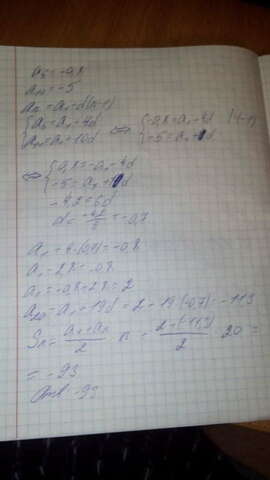 a₅ = -0,8
a₁₁ = -5
aₙ = a₁ + d(n-1)
{a₅ = a₁ + 4d
{a₁₁ = a₁ + 10d ⇔ {-0,8 = a₁ + 4d |(-1)
{-5 = a₁ + 10d
⇔ {0,8 = -a₁ - 4d
{-5 = a₁ + 10d
-4,2 = 6d
d = -4,2/6 = -0,7
a₁ + 4·(-0,7) = -0,8
a₁ - 2,8 = -0,8
a₁ = -0,8 + 2,8 = 2
a₂₀ = a₁ + 19d = 2 + 19·(-0,7) = -11,3
Sₙ = (a₁ + aₙ)/2 · n = (2 + (-11,3))/2 · 20 =
= -93
Ответ: -93